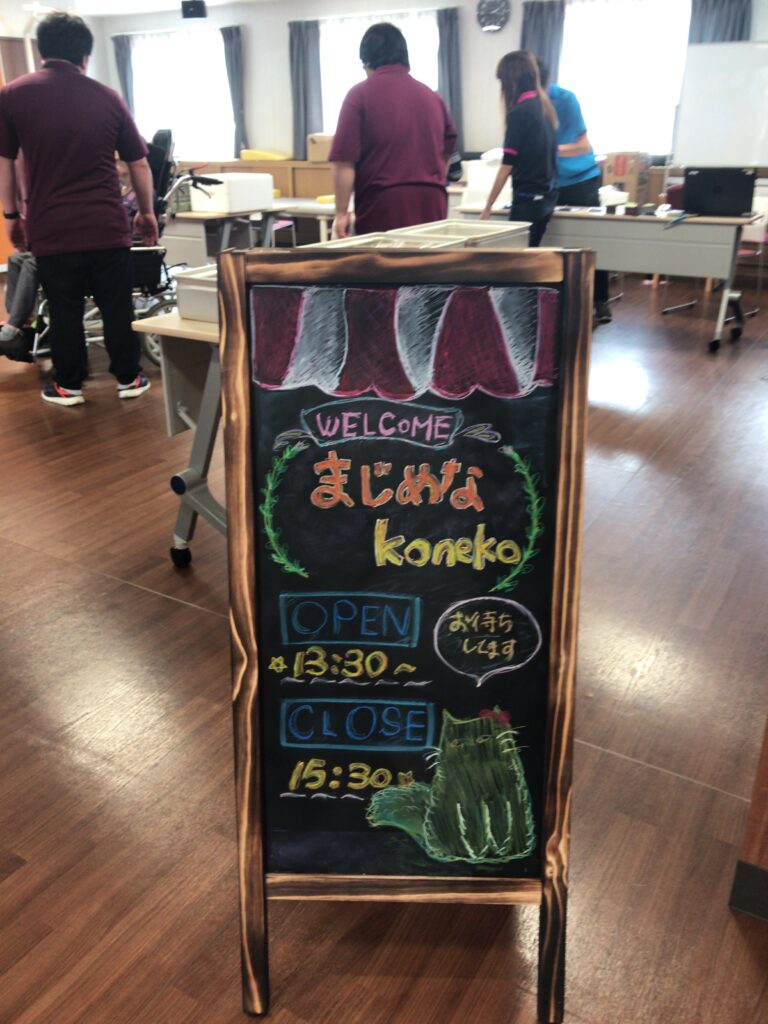 WELCOME
まじめな
koneko
OPEN
13:30~
お待ち
してます
CLOSE
15:30